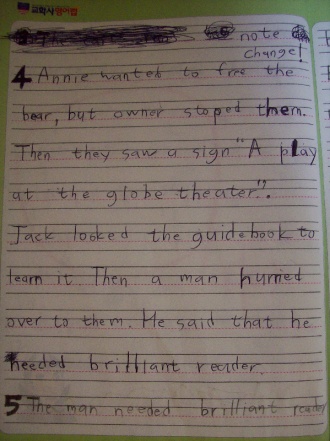 교학사 영어랩
note
change!
4 Annie wanted to free the
bear, but owner stoped them.
Then they saw a sign "A play
at the globe theater".
Jack looked the guidebook to
learn it. Then a man hurried
over to them. He said that he
needed brilliant reader.
5 The man needed brilliant reader